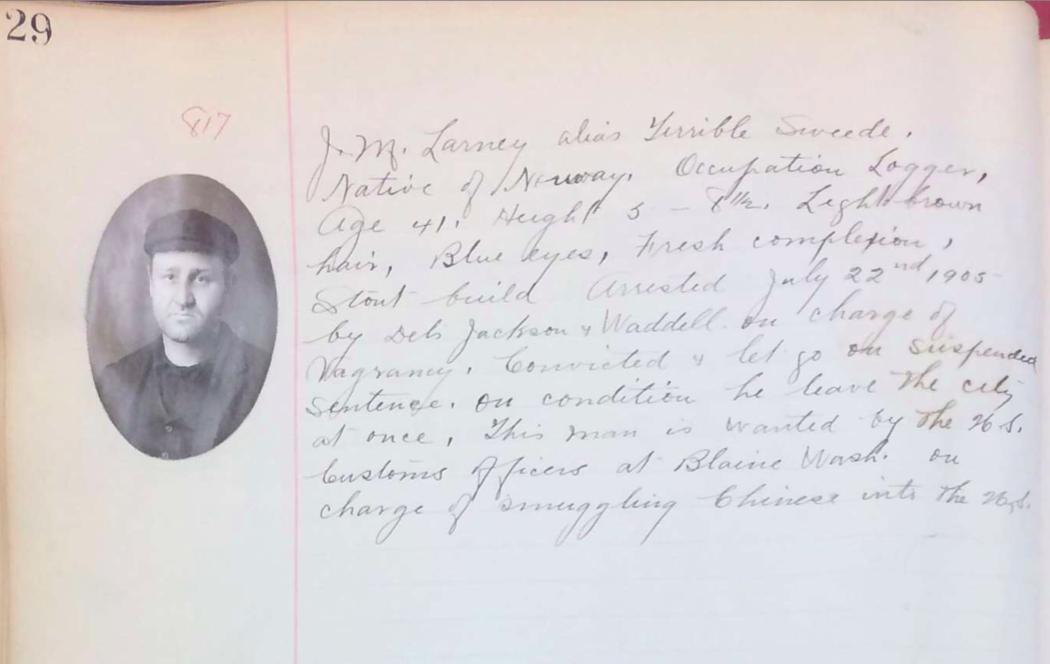 29
817
J. M. Larney alias Terrible Sweede.
Native of Norway. Occupation Logger,
Age 41. Height 5 - 8 1/2. Light brown
hair, Blue eyes, Fresh complexion,
Stout build Arrested July 22nd 1905
by Dets Jackson & Waddell. on charge of
Vagrancy. Convicted & let go on suspended
Sentence. on condition he leave the city
at once, This man is wanted by the U.S.
Customs Officers at Blaine Wash. on
charge of smuggling Chinese into the U.S.